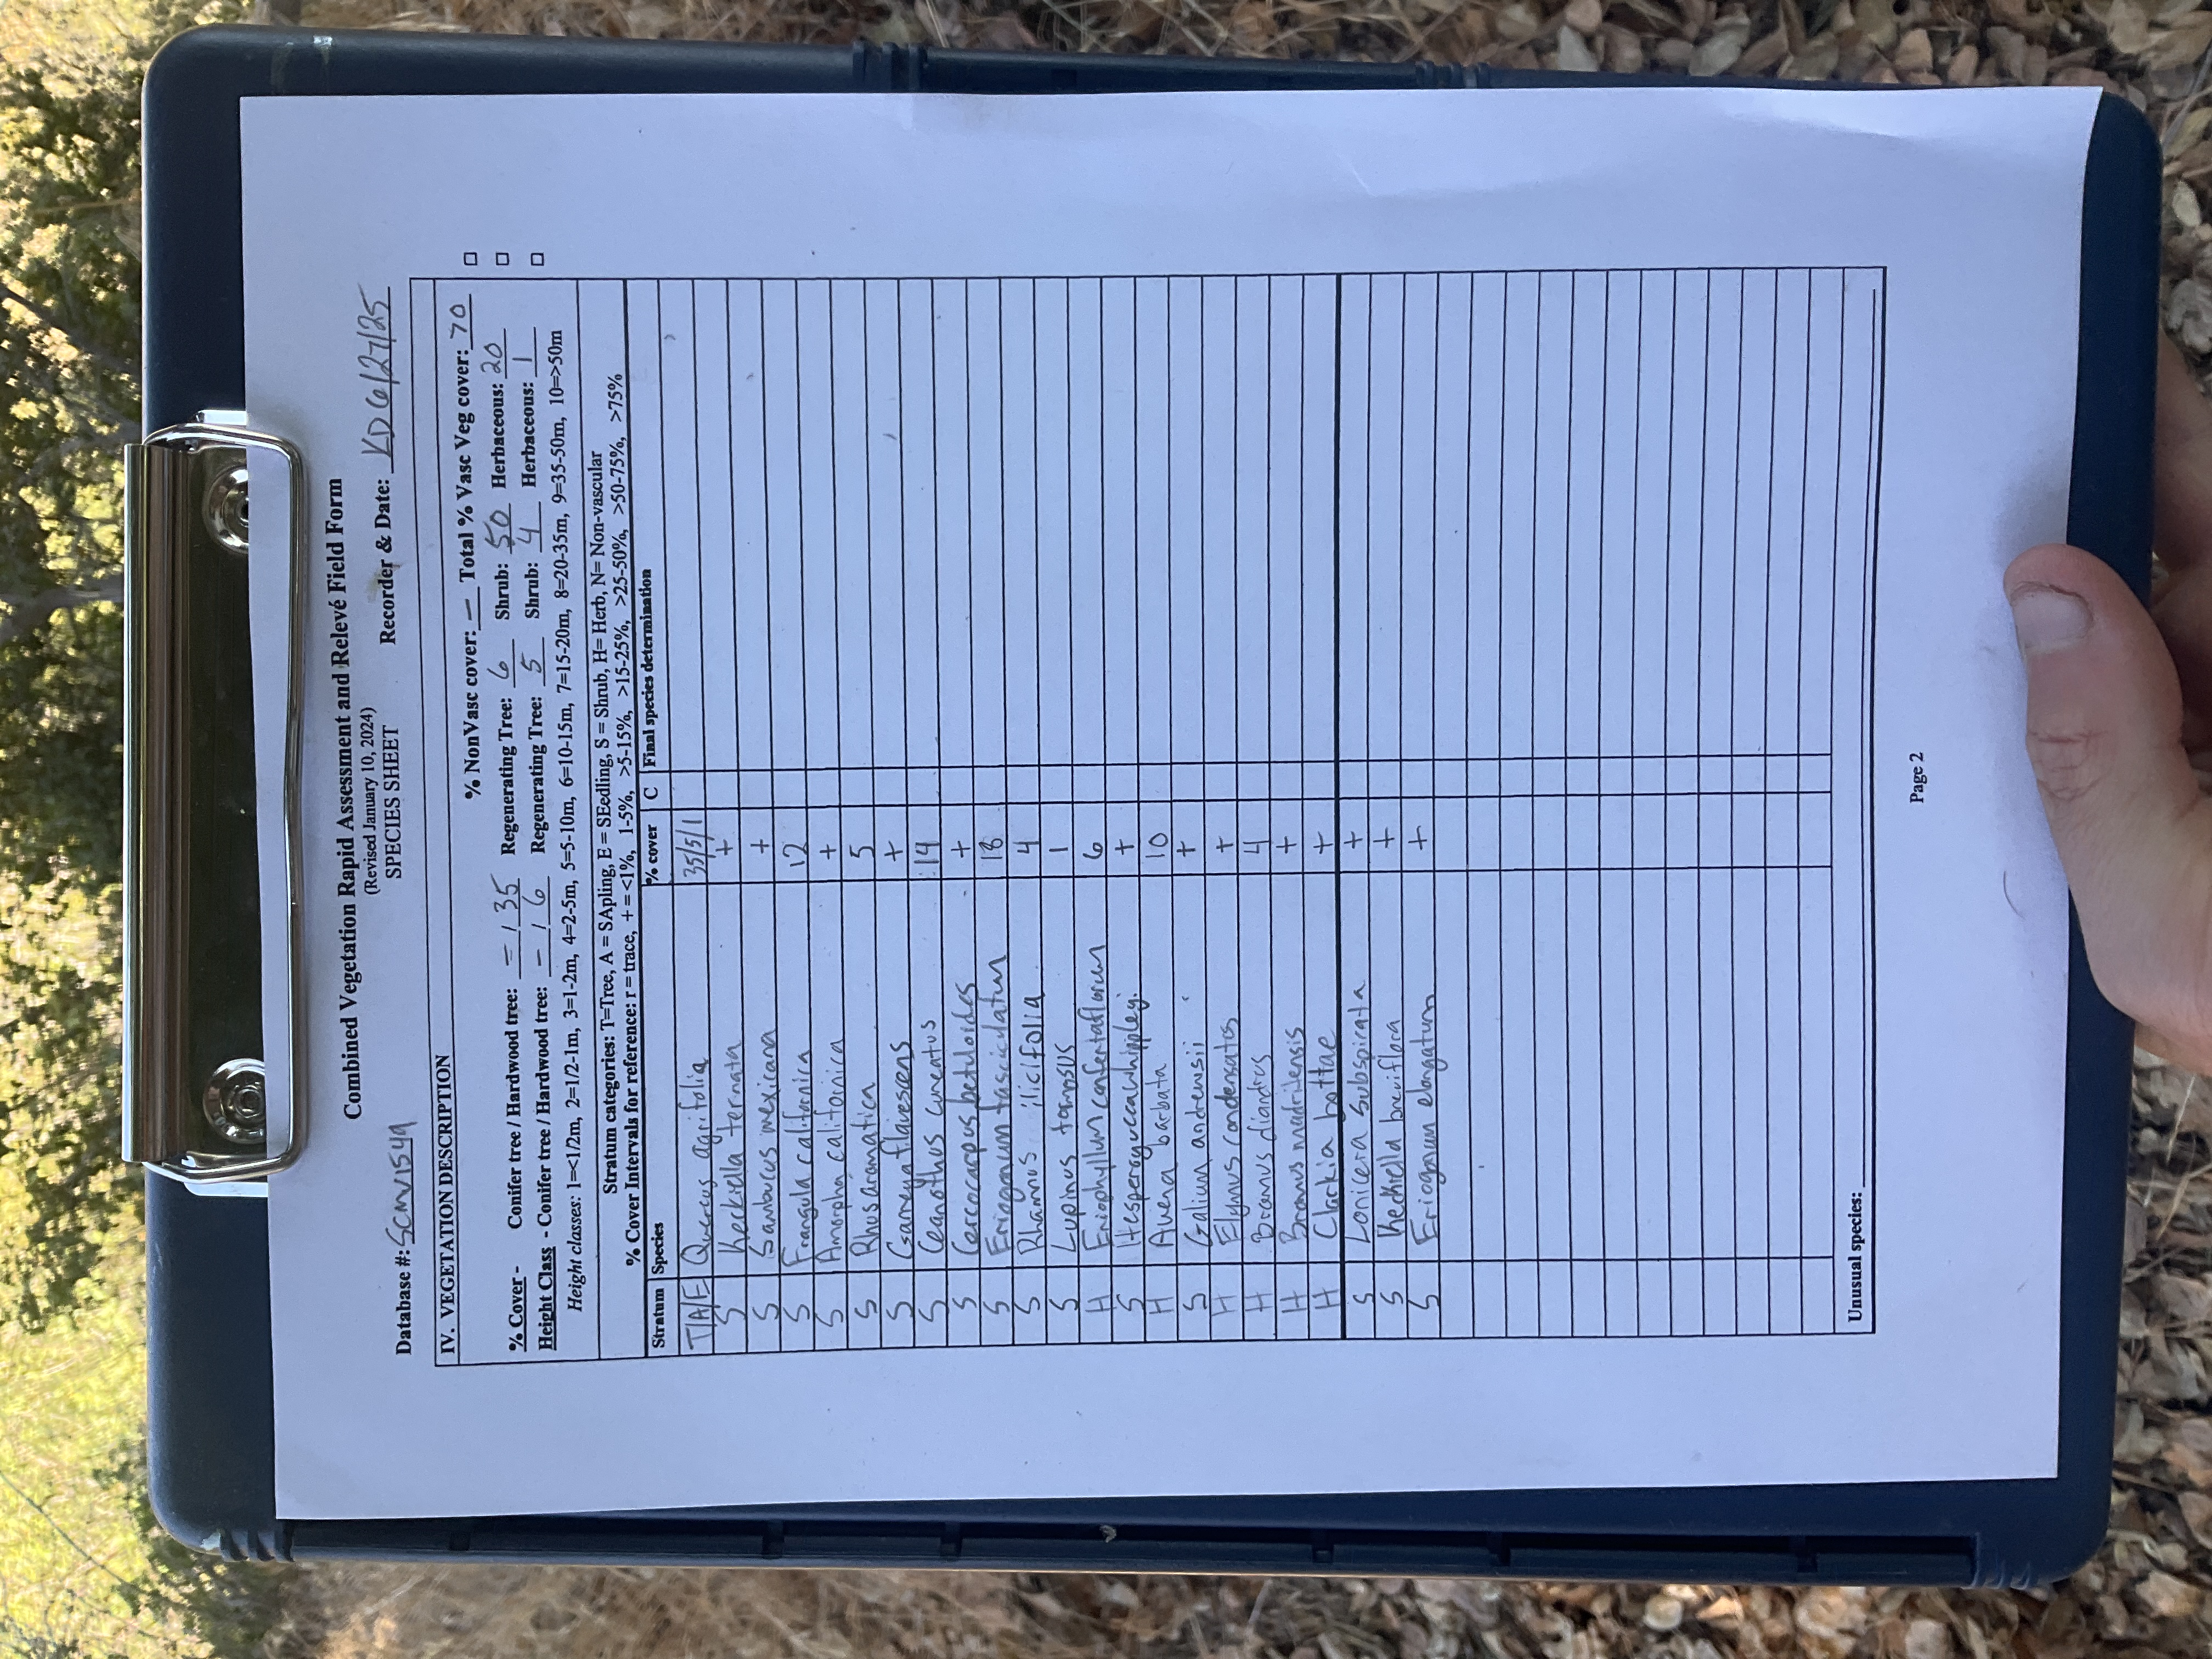 Combined Vegetation Rapid Assessment and Relevé Field Form
(Revised January 10, 2024)
SPECIES SHEET
Database #: SCMV1549 Recorder & Date: KD 6/27/25
IV. VEGETATION DESCRIPTION
% NonVasc cover: — Total % Vasc Veg cover: 70 □
% Cover - Conifer tree / Hardwood tree: — / 35 Regenerating Tree: 6 Shrub: 50 Herbaceous: 20 □
Height Class - Conifer tree / Hardwood tree: — / 6 Regenerating Tree: 5 Shrub: 4 Herbaceous: 1 □
Height classes: 1=<1/2m, 2=1/2-1m, 3=1-2m, 4=2-5m, 5=5-10m, 6=10-15m, 7=15-20m, 8=20-35m, 9=35-50m, 10=>50m
Stratum categories: T=Tree, A = SApling, E = SEedling, S = Shrub, H= Herb, N= Non-vascular
% Cover Intervals for reference: r = trace, + = <1%, 1-5%, >5-15%, >15-25%, >25-50%, >50-75%, >75%
Stratum Species % cover C Final species determination
T/A/E Quercus agrifolia 35/5/1
S Keckiella ternata +
S Sambucus mexicana +
S Frangula californica 12
S Amorpha californica +
S Rhus aromatica 5
S flavescens +
S Ceanothus cuneatus 14
S Cercocarpus betuloides +
S Eriogonum fasciculatum 18
S Rhamnus ilicifolia 4
S Lupinus 1
H Eriophyllum confertaflorum 6
S Hesperoyucca whipplei +
H Avena barbata 10
S Galium andrewsii +
H Elymus condensatus +
H Bromus diandrus 4
H Bromus madritensis +
H Clarkia bottae +
S Lonicera subspicata +
S Keckiella breviflora +
S Eriogonum elongatum +
Unusual species:
Page 2